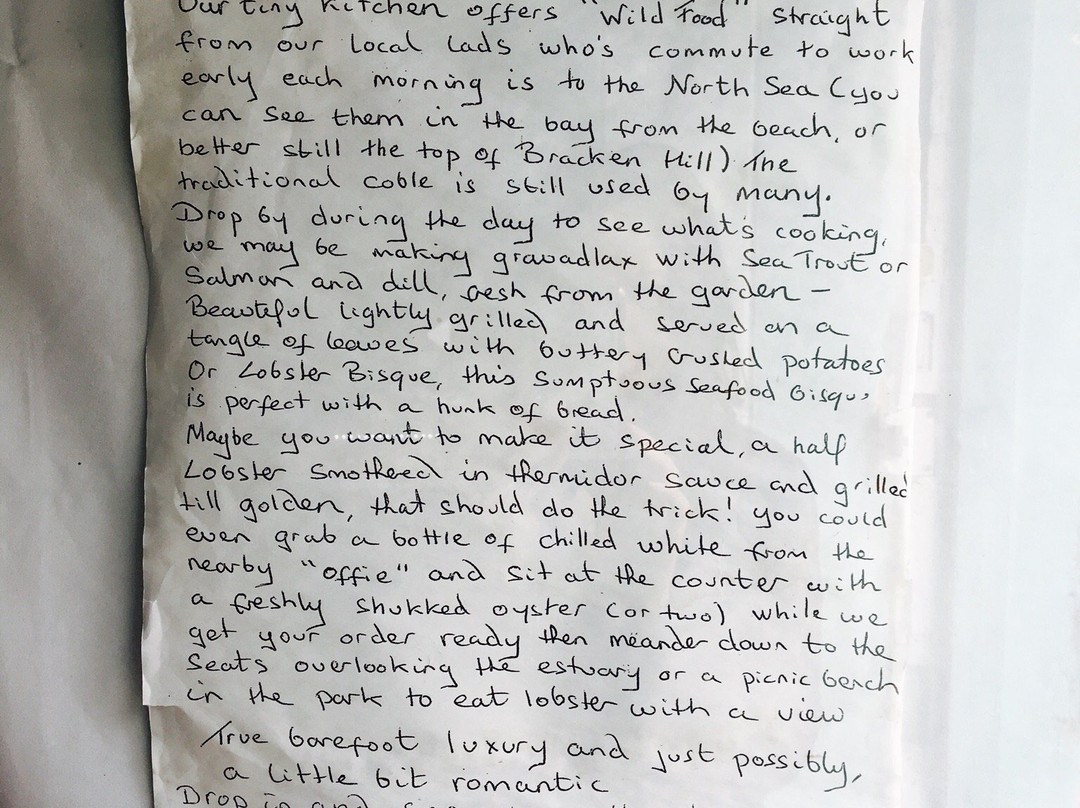 Our tiny kitchen offers "Wild Food" straight
from our local lads who's commute to work
early each morning is to the North Sea (you
can see them in the bay from the beach, or
better still the top of Bracken Hill) The
traditional coble is still used by many.
Drop by during the day to see what's cooking,
we may be making gravadlax with Sea Trout or
Salmon and dill, fresh from the garden –
Beautiful lightly grilled and served on a
tangle of leaves with buttery crushed potatoes
Or Lobster Bisque, this sumptuous seafood bisque
is perfect with a hunk of bread.
Maybe you want to make it special, a half
Lobster smothered in thermidor sauce and grilled
till golden, that should do the trick! you could
even grab a bottle of chilled white from the
nearby "offie" and sit at the counter with
a freshly shukked oyster (or two) while we
get your order ready then meander down to the
seats overlooking the estuary or a picnic bench
in the park to eat lobster with a view
True barefoot luxury and just possibly,
a little bit romantic
Drop in and